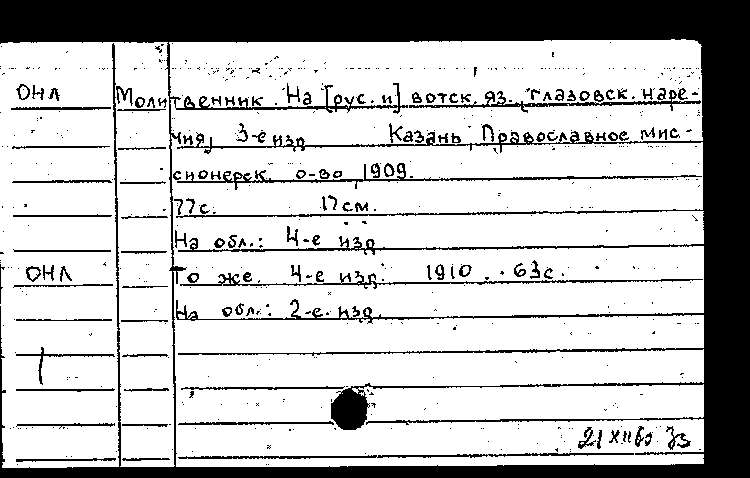 ОНЛ Молитвенник. На [рус. и] вотск. яз., глазовск. наре-
чия, 3-е изд Казань, Православное мис-
сионерск. о-во, 1909.
77с. 17см.
На обл.: 4-е изд.
ОНЛ То же. 4-е изд. 1910. 63с.
На обл.: 2-е. изд.
21 XII 60